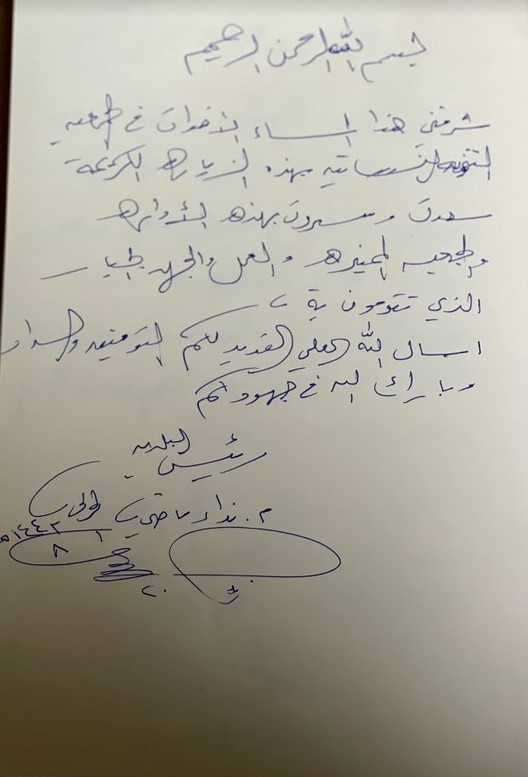 بسم الله الرحمن الرحيم
شرفني هذا المساء الأخوات في جمعية
النسائية بهذه الزيارة الكريمة
سعدت وسررت بهذه الأداره
والجمعيه المميزه والعمل والجهد الجبار
الذي تقومون به
اسال الله العلي القدير لكم التوفيق والسداد
وبارك الله في جهودكم
رئيس البلديه
م. نداء
٨ / ١٤٤٢هـ